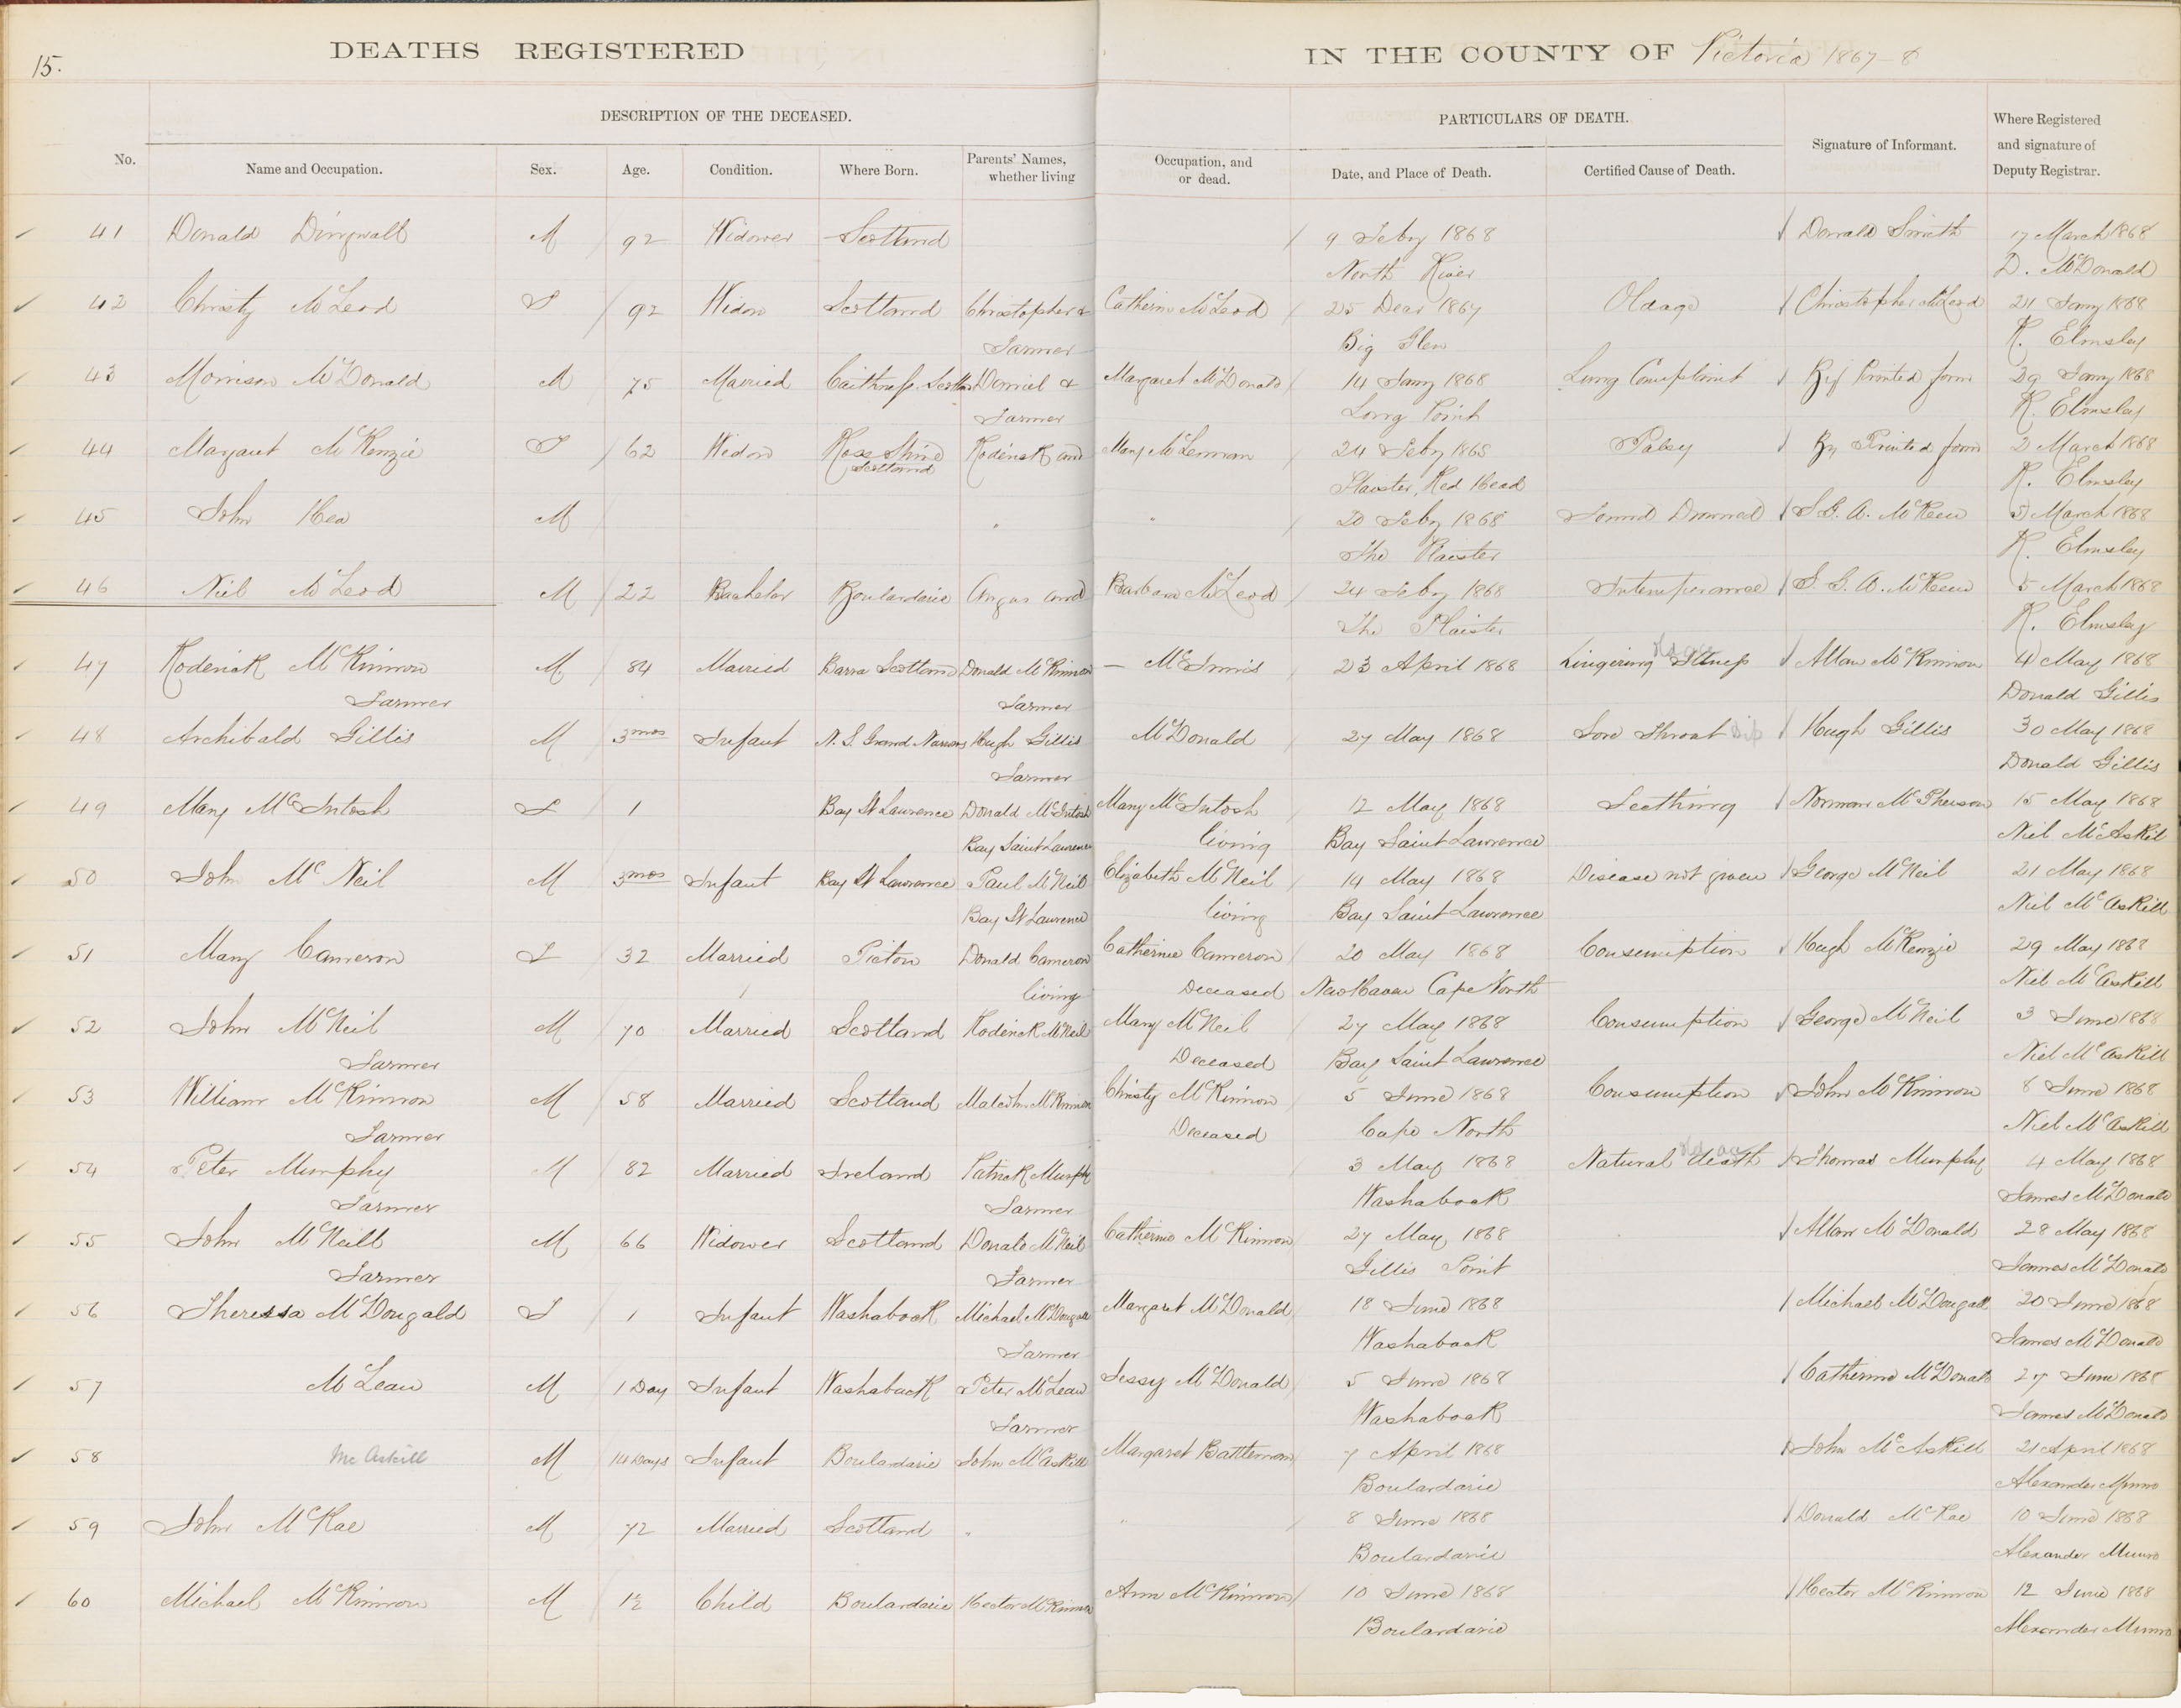 15.
DEATHS REGISTERED IN THE COUNTY OF Victoria 1867-8
DESCRIPTION OF THE DECEASED. PARTICULARS OF DEATH.
No. Name and Occupation. Sex. Age. Condition. Where Born. Parents' Names, whether living Occupation, and or dead. Date, and Place of Death. Certified Cause of Death. Signature of Informant. Where Registered and signature of Deputy Registrar.
41 Donald Dingwall M 92 Widower Scotland 9 Feby 1868 Donald Smith 17 March 1868
North River D. McDonald
42 Christy McLeod F 92 Widow Scotland Christopher & Catherine McLeod 25 Decr 1867 Oldage Christopher McLeod 21 Jany 1868
Farmer Big Glen K. Elmsley
43 Morrison McDonald M 75 Married Caithness Scotland Daniel & Margaret McDonald 14 Jany 1868 Lung Complaint By Printed form 29 Jany 1868
Farmer Long Point K. Elmsley
44 Margaret McKenzie F 62 Widow Ross Shire Roderick and Mary McLennan 24 Feby 1868 Palsy By Printed form 2 March 1868
Scotland Plaister, Red Head K. Elmsley
45 John Hea M " " 20 Feby 1868 Found Drowned S. G. A. McKeen 5 March 1868
The Plaister K. Elmsley
46 Niel McLeod M 22 Bachelor Boulardarie Angus and Barbara McLeod 24 Feby 1868 Intemperance S. G. A. McKeen 5 March 1868
The Plaister K. Elmsley
47 Roderick McKinnon M 84 Married Barra Scotland Donald McKinnon — McInnis 23 April 1868 Lingering Illness Allan McKinnon 4 May 1868
Farmer Farmer Donald Gillis
48 Archibald Gillis M 3 mos Infant N. S. Grand Narrows Hugh Gillis McDonald 27 May 1868 Sore Throat Dip Hugh Gillis 30 May 1868
Farmer Donald Gillis
49 Mary McIntosh F 1 Bay St Lawrence Donald McIntosh Mary McIntosh 12 May 1868 Teething Norman McPherson 15 May 1868
Bay Saint Lawrence living Bay Saint Lawrence Niel McAskil
50 John McNeil M 3 mos Infant Bay St Lawrence Paul McNeil Elizabeth McNeil 14 May 1868 Disease not given George McNeil 21 May 1868
Bay St Lawrence living Bay Saint Lawrence Niel McAskill
51 Mary Cameron F 32 Married Pictou Donald Cameron Catherine Cameron 20 May 1868 Consumption Hugh McKenzie 29 May 1868
living Deceased New Haven Cape North Niel McAskill
52 John McNeil M 70 Married Scotland Roderick McNeil Mary McNeil 27 May 1868 Consumption George McNeil 3 June 1868
Farmer Deceased Bay Saint Lawrence Niel McAskill
53 William McKinnon M 58 Married Scotland Malcolm McKinnon Christy McKinnon 5 June 1868 Consumption John McKinnon 8 June 1868
Farmer Deceased Cape North Niel McAskill
54 Peter Murphy M 82 Married Ireland Patrick Murphy 3 May 1868 Natural death Thomas Murphy 4 May 1868
Farmer Farmer Washaback James McDonald
55 John McNeill M 66 Widower Scotland Donald McNeil Catherine McKinnon 27 May 1868 Allan McDonald 28 May 1868
Farmer Farmer Gillis Point James McDonald
56 Theressa McDougald F 1 Infant Washaback Michael McDougall Margaret McDonald 18 June 1868 Michael McDougall 20 June 1868
Farmer Washaback James McDonald
57 McLean M 1 Day Infant Washaback Peter McLean Jessy McDonald 5 June 1868 Catherine McDonald 27 June 1868
Farmer Washaback James McDonald
58 McAskill M 14 Days Infant Boulardarie John McAskill Margaret Battleman 7 April 1868 John McAskill 21 April 1868
Boulardarie Alexander Munro
59 John McRae M 72 Married Scotland " " 8 June 1868 Donald McRae 10 June 1868
Boulardarie Alexander Munro
60 Michael McKinnon M 1½ Child Boulardarie Hector McKinnon Ann McKinnon 10 June 1868 Hector McKinnon 12 June 1868
Boulardarie Alexander Munro